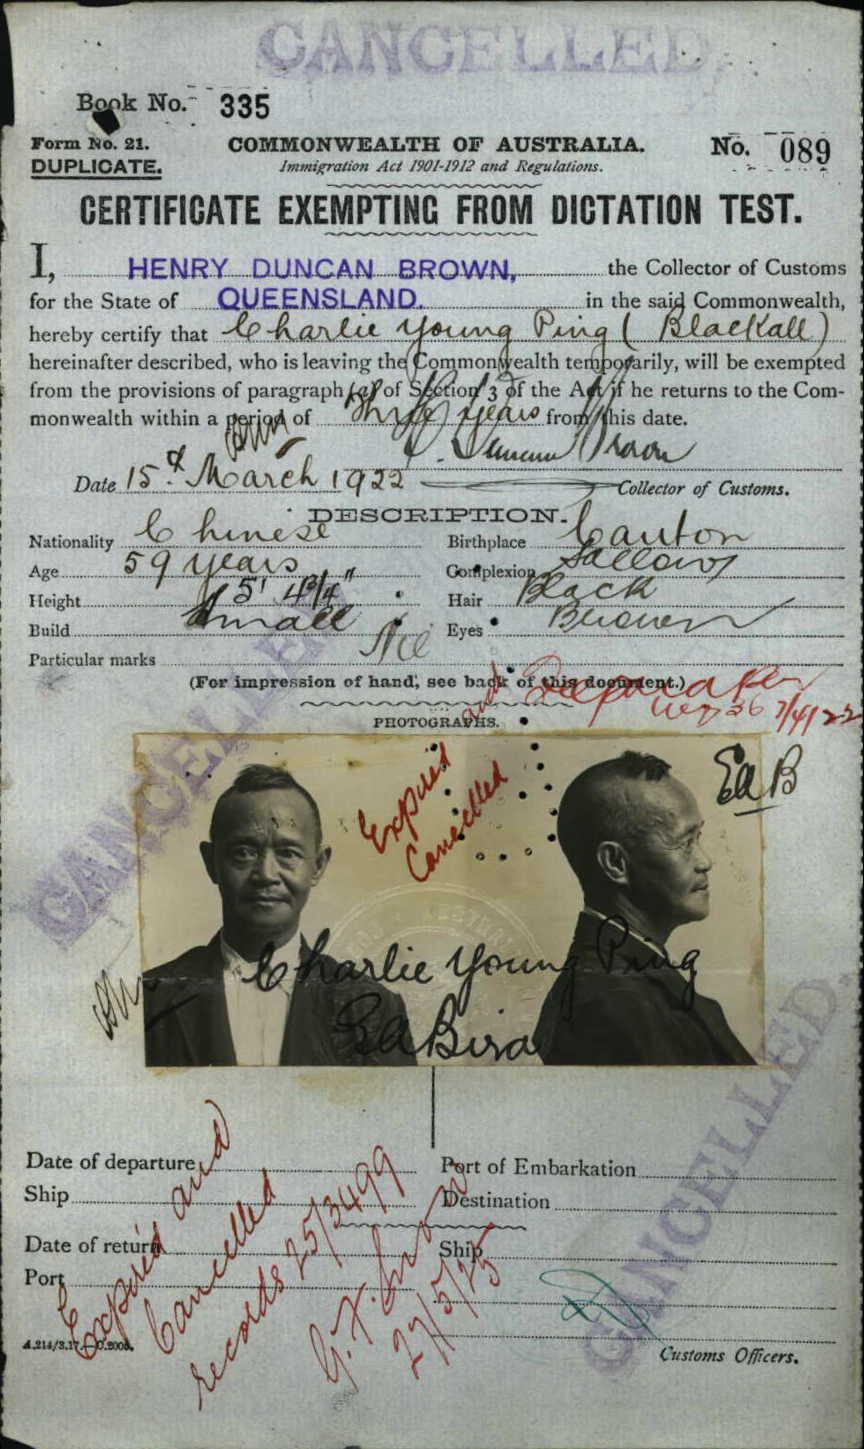 CANCELLED
Book No. 335
Form No. 21. COMMONWEALTH OF AUSTRALIA. No. 089
DUPLICATE. Immigration Act 1901-1912 and Regulations.
CERTIFICATE EXEMPTING FROM DICTATION TEST.
I, HENRY DUNCAN BROWN, the Collector of Customs
for the State of QUEENSLAND. in the said Commonwealth,
hereby certify that Charlie Young Ping ( Blackall )
hereinafter described, who is leaving the Commonwealth temporarily, will be exempted
from the provisions of paragraph (a) of Section 3 of the Act if he returns to the Com-
monwealth within a period of Three years from this date.
H. Duncan Brown
Date 15th March 1922 Collector of Customs.
DESCRIPTION.
Nationality Chinese Birthplace Canton
Age 59 years Complexion Sallow
Height 5' 4¾" Hair Black
Build Small Eyes Brown
Particular marks Nil
(For impression of hand, see back of this document.)
7/4/22
PHOTOGRAPHS.
CANCELLED
Expired and
Cancelled
EaB
Charlie Young Ping
CANCELLED.
Date of departure Port of Embarkation
Ship Destination
Date of return Ship
Port
Expired and
Cancelled
records 25/3499
27/5/25
A.214/3.17.—C.2006. Customs Officers.